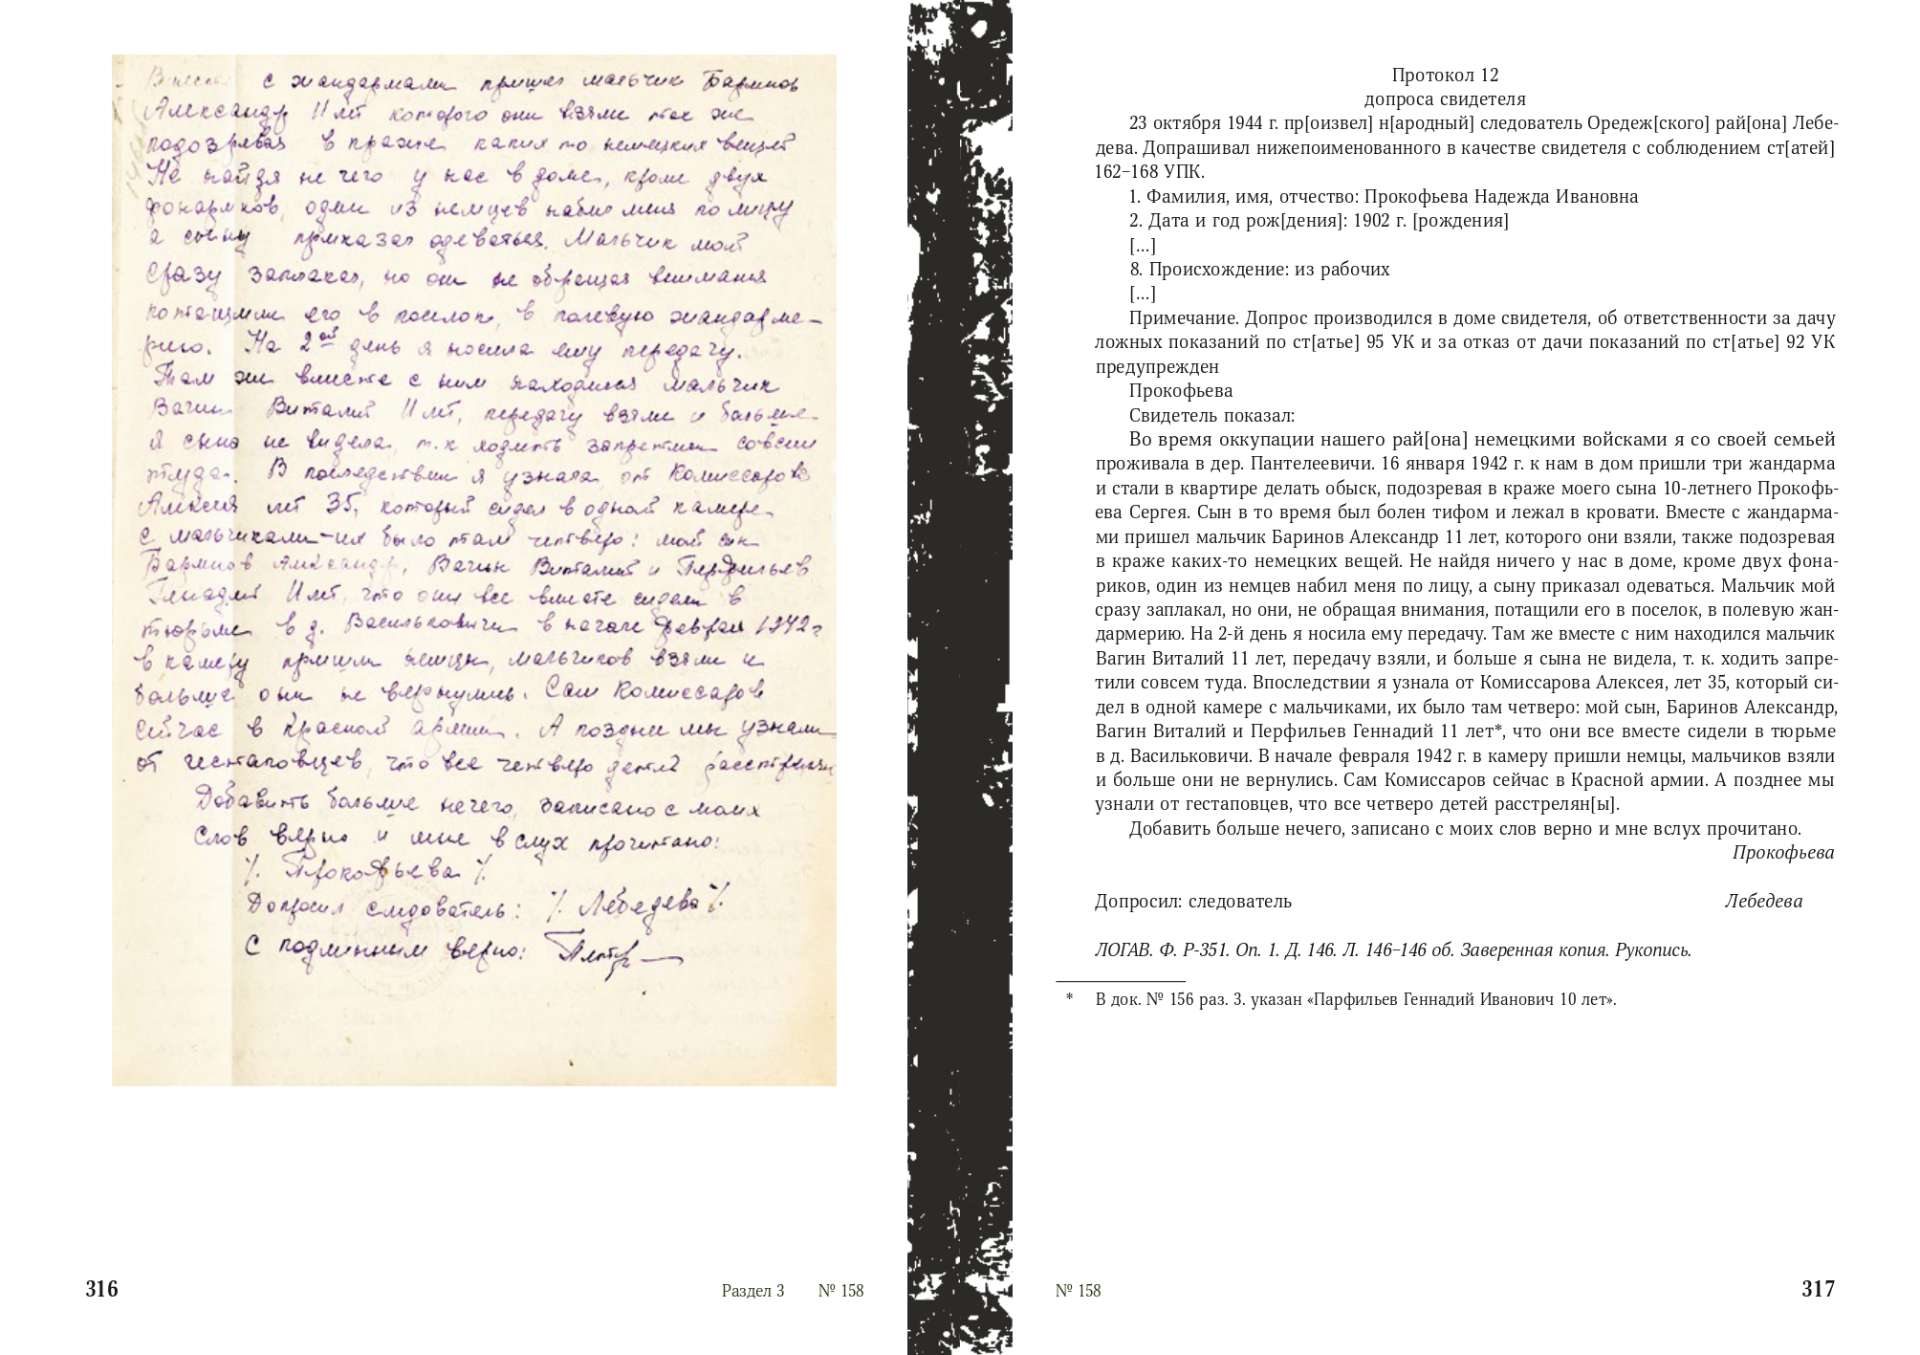 Вместе с жандармами пришел мальчик Баринов
Александр 11 лет которого они взяли так же
подозревая в краже каких то немецких вещей
Не найдя не чего у нас в доме, кроме двух
фонариков, один из немцев набил меня по лицу
а сыну приказал одеваться. Мальчик мой
сразу заплакал, но они не обращая внимания
потащили его в поселок, в полевую жандарме-
рию. На 2ой день я носила ему передачу.
Там же вместе с ним находился мальчик
Вагин Виталий 11 лет, передачу взяли и больше
я сына не видела, т.к ходить запретили совсем
туда. В последствии я узнала от Комиссарова
Алексея лет 35, который сидел в одной камере
с мальчиками-их было там четверо: мой сын
Баринов Александр, Вагин Виталий и Перфильев
Генадий 11 лет, что они все вместе сидели в
тюрьме в д. Васильковичи в начале февраля 1942 г
в камеру пришли немцы, мальчиков взяли и
больше они не вернулись. Сам Комиссаров
сейчас в Красной армии. А поздние мы узнали
от гестаповцев, что все четверо детей расстреляны
Добавить больше нечего, записано с моих
слов верно и мне в слух прочитано:
/. Прокофьева /.
Допросил следователь: /. Лебедева /.
С подлинным верно:
316
Раздел 3 № 158
Протокол 12
допроса свидетеля
23 октября 1944 г. пр[оизвел] н[ародный] следователь Оредеж[ского] рай[она] Лебе-
дева. Допрашивал нижепоименованного в качестве свидетеля с соблюдением ст[атей]
162–168 УПК.
1. Фамилия, имя, отчество: Прокофьева Надежда Ивановна
2. Дата и год рож[дения]: 1902 г. [рождения]
[...]
8. Происхождение: из рабочих
[...]
Примечание. Допрос производился в доме свидетеля, об ответственности за дачу
ложных показаний по ст[атье] 95 УК и за отказ от дачи показаний по ст[атье] 92 УК
предупрежден
Прокофьева
Свидетель показал:
Во время оккупации нашего рай[она] немецкими войсками я со своей семьей
проживала в дер. Пантелеевичи. 16 января 1942 г. к нам в дом пришли три жандарма
и стали в квартире делать обыск, подозревая в краже моего сына 10-летнего Прокофь-
ева Сергея. Сын в то время был болен тифом и лежал в кровати. Вместе с жандарма-
ми пришел мальчик Баринов Александр 11 лет, которого они взяли, также подозревая
в краже каких-то немецких вещей. Не найдя ничего у нас в доме, кроме двух фона-
риков, один из немцев набил меня по лицу, а сыну приказал одеваться. Мальчик мой
сразу заплакал, но они, не обращая внимания, потащили его в поселок, в полевую жан-
дармерию. На 2-й день я носила ему передачу. Там же вместе с ним находился мальчик
Вагин Виталий 11 лет, передачу взяли, и больше я сына не видела, т. к. ходить запре-
тили совсем туда. Впоследствии я узнала от Комиссарова Алексея, лет 35, который си-
дел в одной камере с мальчиками, их было там четверо: мой сын, Баринов Александр,
Вагин Виталий и Перфильев Геннадий 11 лет*, что они все вместе сидели в тюрьме
в д. Васильковичи. В начале февраля 1942 г. в камеру пришли немцы, мальчиков взяли
и больше они не вернулись. Сам Комиссаров сейчас в Красной армии. А позднее мы
узнали от гестаповцев, что все четверо детей расстрелян[ы].
Добавить больше нечего, записано с моих слов верно и мне вслух прочитано.
Прокофьева
Допросил: следователь Лебедева
ЛОГАВ. Ф. Р-351. Оп. 1. Д. 146. Л. 146–146 об. Заверенная копия. Рукопись.
* В док. № 156 раз. 3. указан «Парфильев Геннадий Иванович 10 лет».
№ 158
317